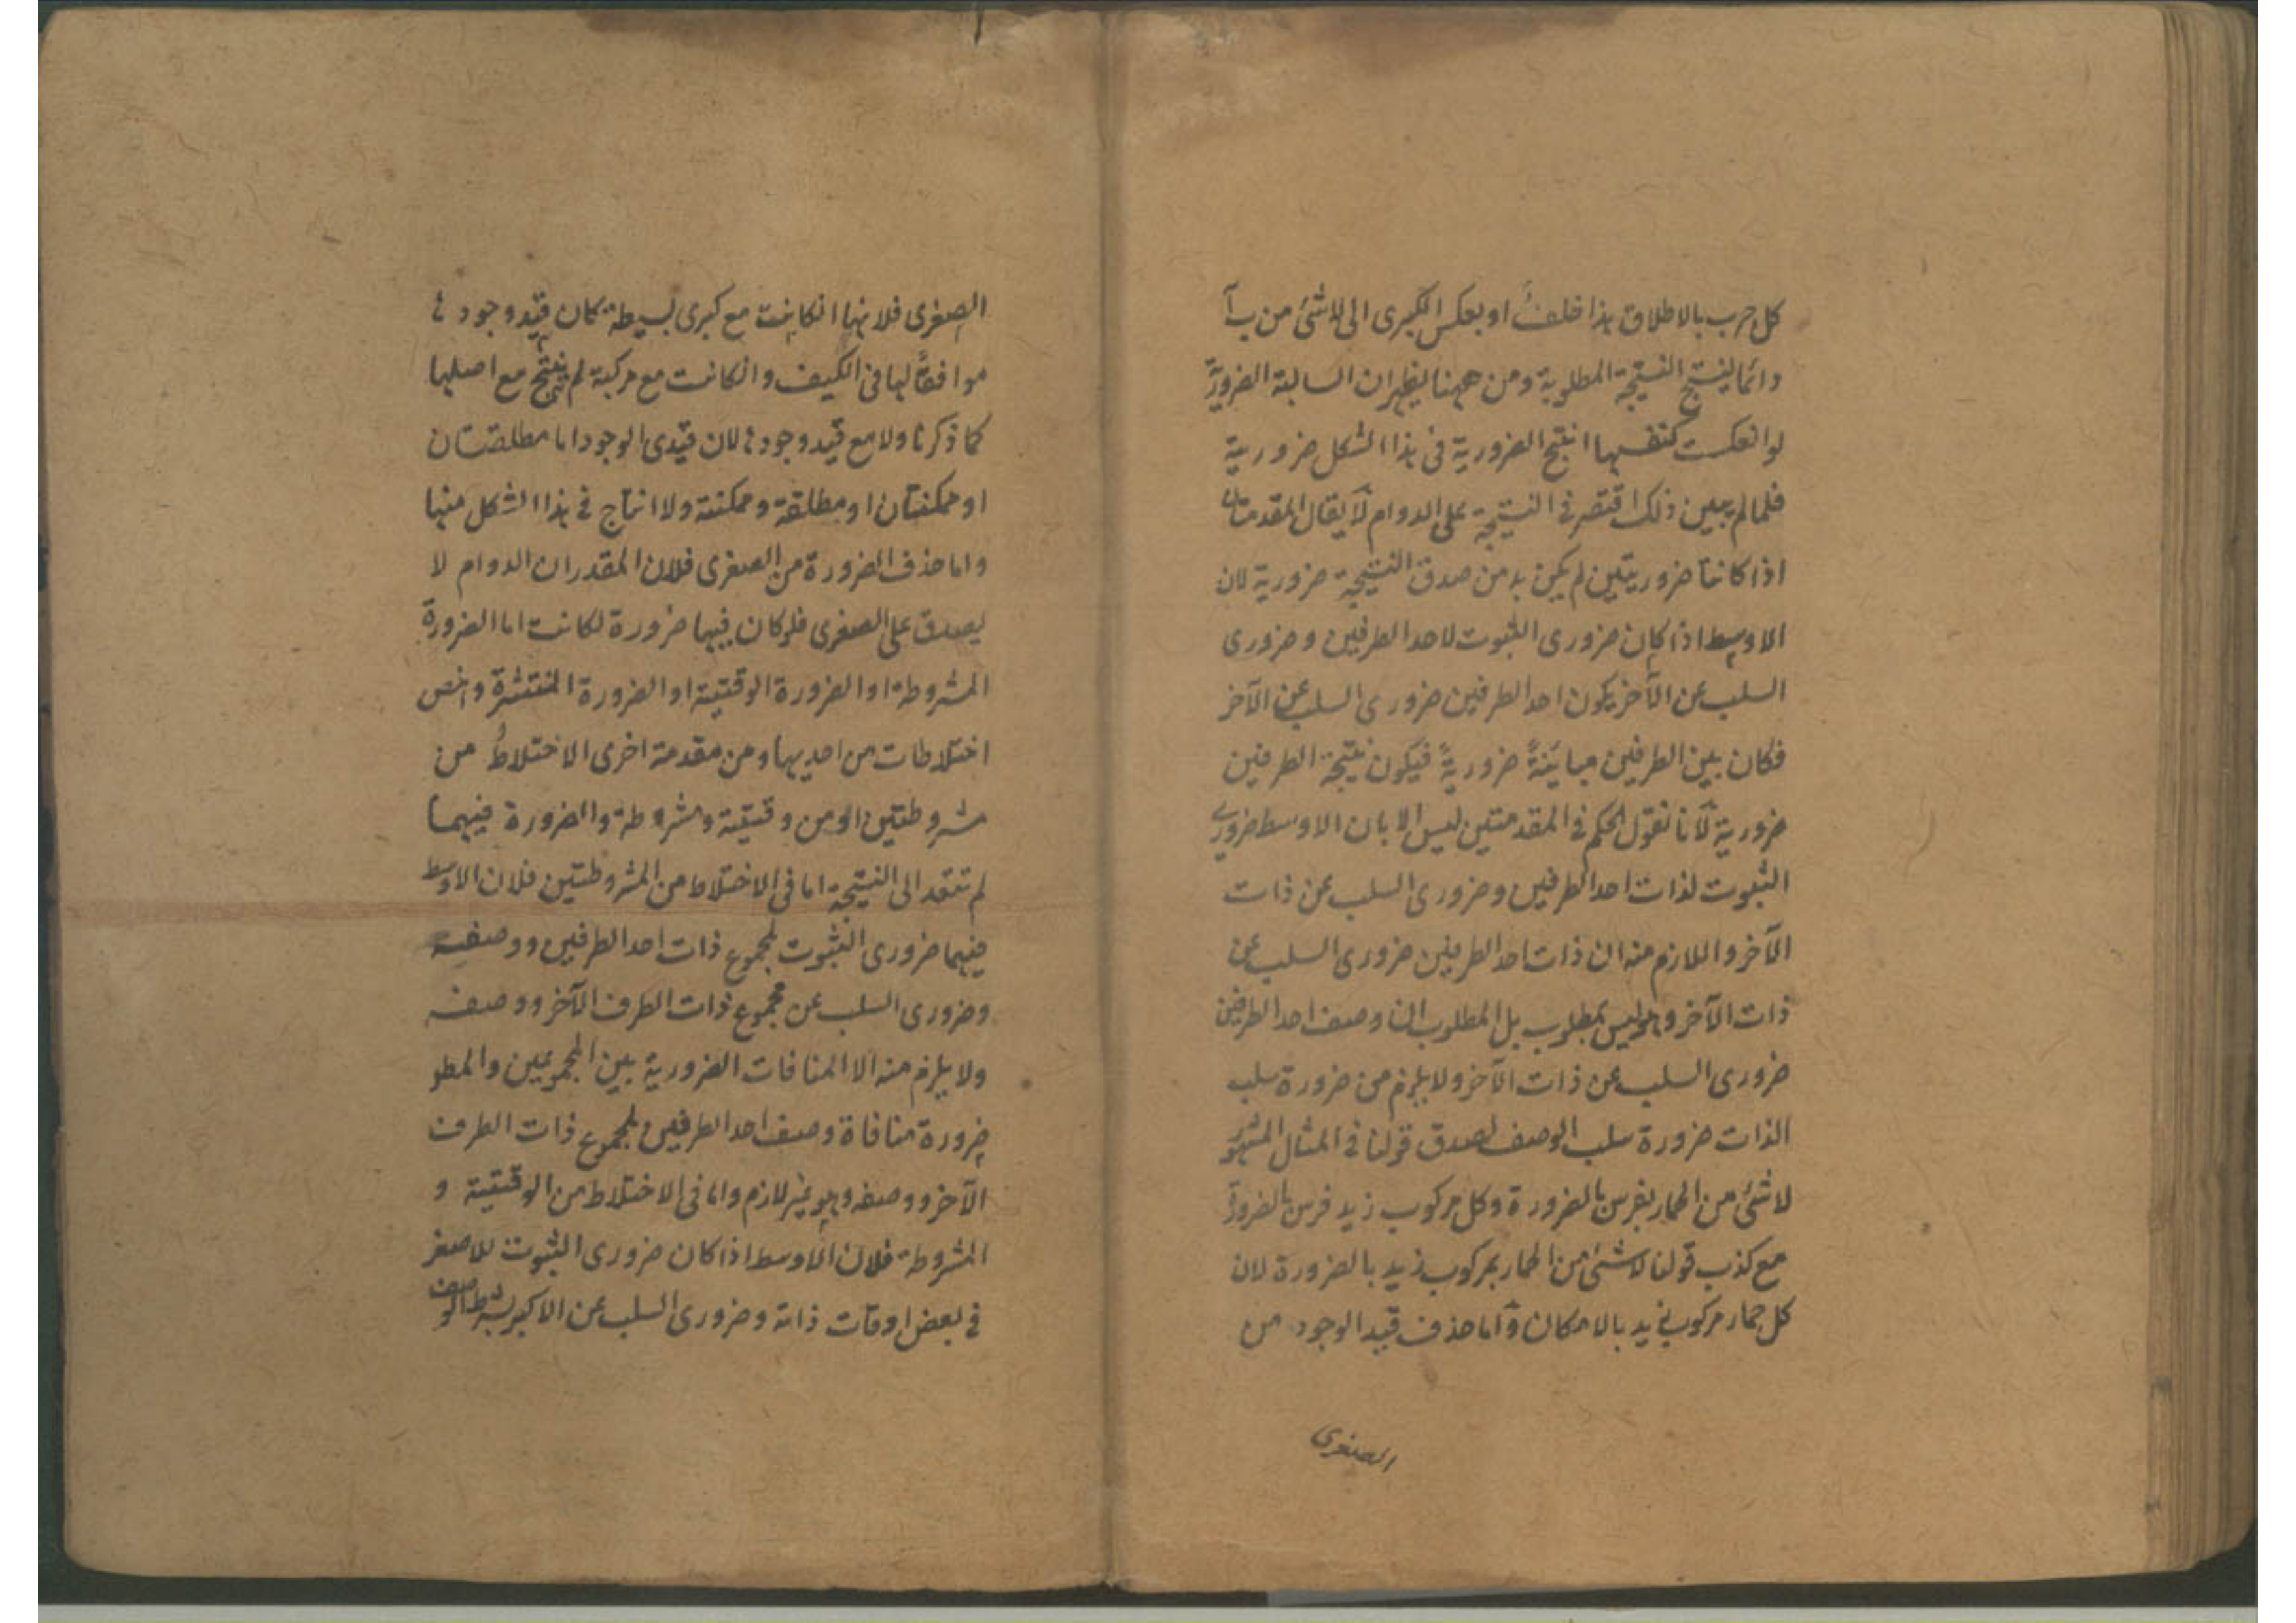 كل ج ب بالاطلاق هذا خلف او بعكس الكبرى الى لا شئ من ب آ
دائما لينتج النتيجة المطلوبة ومن ههنا يظهر ان السالبة الضرورية
لو انعكست كنفسها انتج الضرورية فى هذا الشكل ضرورية
فلما لم يبين ذلك اقتصر فى النتيجة على الدوام لا يقال المقدمتان
اذا كانتا ضروريتين لم يكن بد من صدق النتيجة ضرورية لان
الاوسط اذا كان ضرورى الثبوت لاحد الطرفين وضرورى
السلب عن الآخر يكون احد الطرفين ضرورى السلب عن الآخر
فكان بين الطرفين مباينةً ضروريةً فيكون نتيجة الطرفين
ضرورية لآنا نقول الحكم فى المقدمتين ليس الا بان الاوسط ضرورى
الثبوت لذات احد الطرفين وضرورى السلب عن ذات
الآخر واللازم منه ان ذات احد الطرفين ضرورى السلب عن
ذات الآخر وهو ليس بمطلوب بل المطلوب ان وصف احد الطرفين
ضرورى السلب عن ذات الآخر ولا يلزم من ضرورة سلب
الذات ضرورة سلب الوصف لصدق قولنا فى المثال المشهور
لا شئ من الحمار بفرس بالضرورة وكل مركوب زيد فرس بالضرورة
مع كذب قولنا لا شئ من الحمار بمركوب زيد بالضرورة لان
كل حمار مركوب زيد بالامكان وآما حذف قيد الوجود من
الصغرى
الصغرى فلانها انكانت مع كبرى بسيطة كان قيد وجودها
موافقًا لها فى الكيف وانكانت مع مركبة لم ينتج مع اصلها
كما ذكرنا ولا مع قيد وجودها لان قيدى الوجود اما مطلقتان
او ممكنتان او مطلقة وممكنة ولا انتاج فى هذا الشكل منها
واما حذف الضرورة من الصغرى فلان المقدر ان الدوام لا
يصدق على الصغرى فلو كان فيها ضرورة لكانت اما الضرورة
المشروطة او الضرورة الوقتية او الضرورة المنتشرة واخص
اختلاطات من احديها ومن مقدمة اخرى الاختلاطُ من
مشروطتين او من وقتية ومشروطة والضرورة فيهما
لم تتعد الى النتيجة اما فى الاختلاط من المشروطتين فلان الاوسط
فيهما ضرورى الثبوت لمجموع ذات احد الطرفين ووصفه
وضرورى السلب عن مجموع ذات الطرف الآخر ووصفه
ولا يلزم منه الا المنافات الضرورية بين المجموعين والمطلو
ضرورة منافاة وصف احد الطرفين لمجموع ذات الطرف
الآخر ووصفه وهو غير لازم واما فى الاختلاط من الوقتية و
المشروطة فلان الاوسط اذا كان ضرورى الثبوت للاصغر
فى بعض اوقات ذاته وضرورى السلب عن الاكبر بشرط الوصف